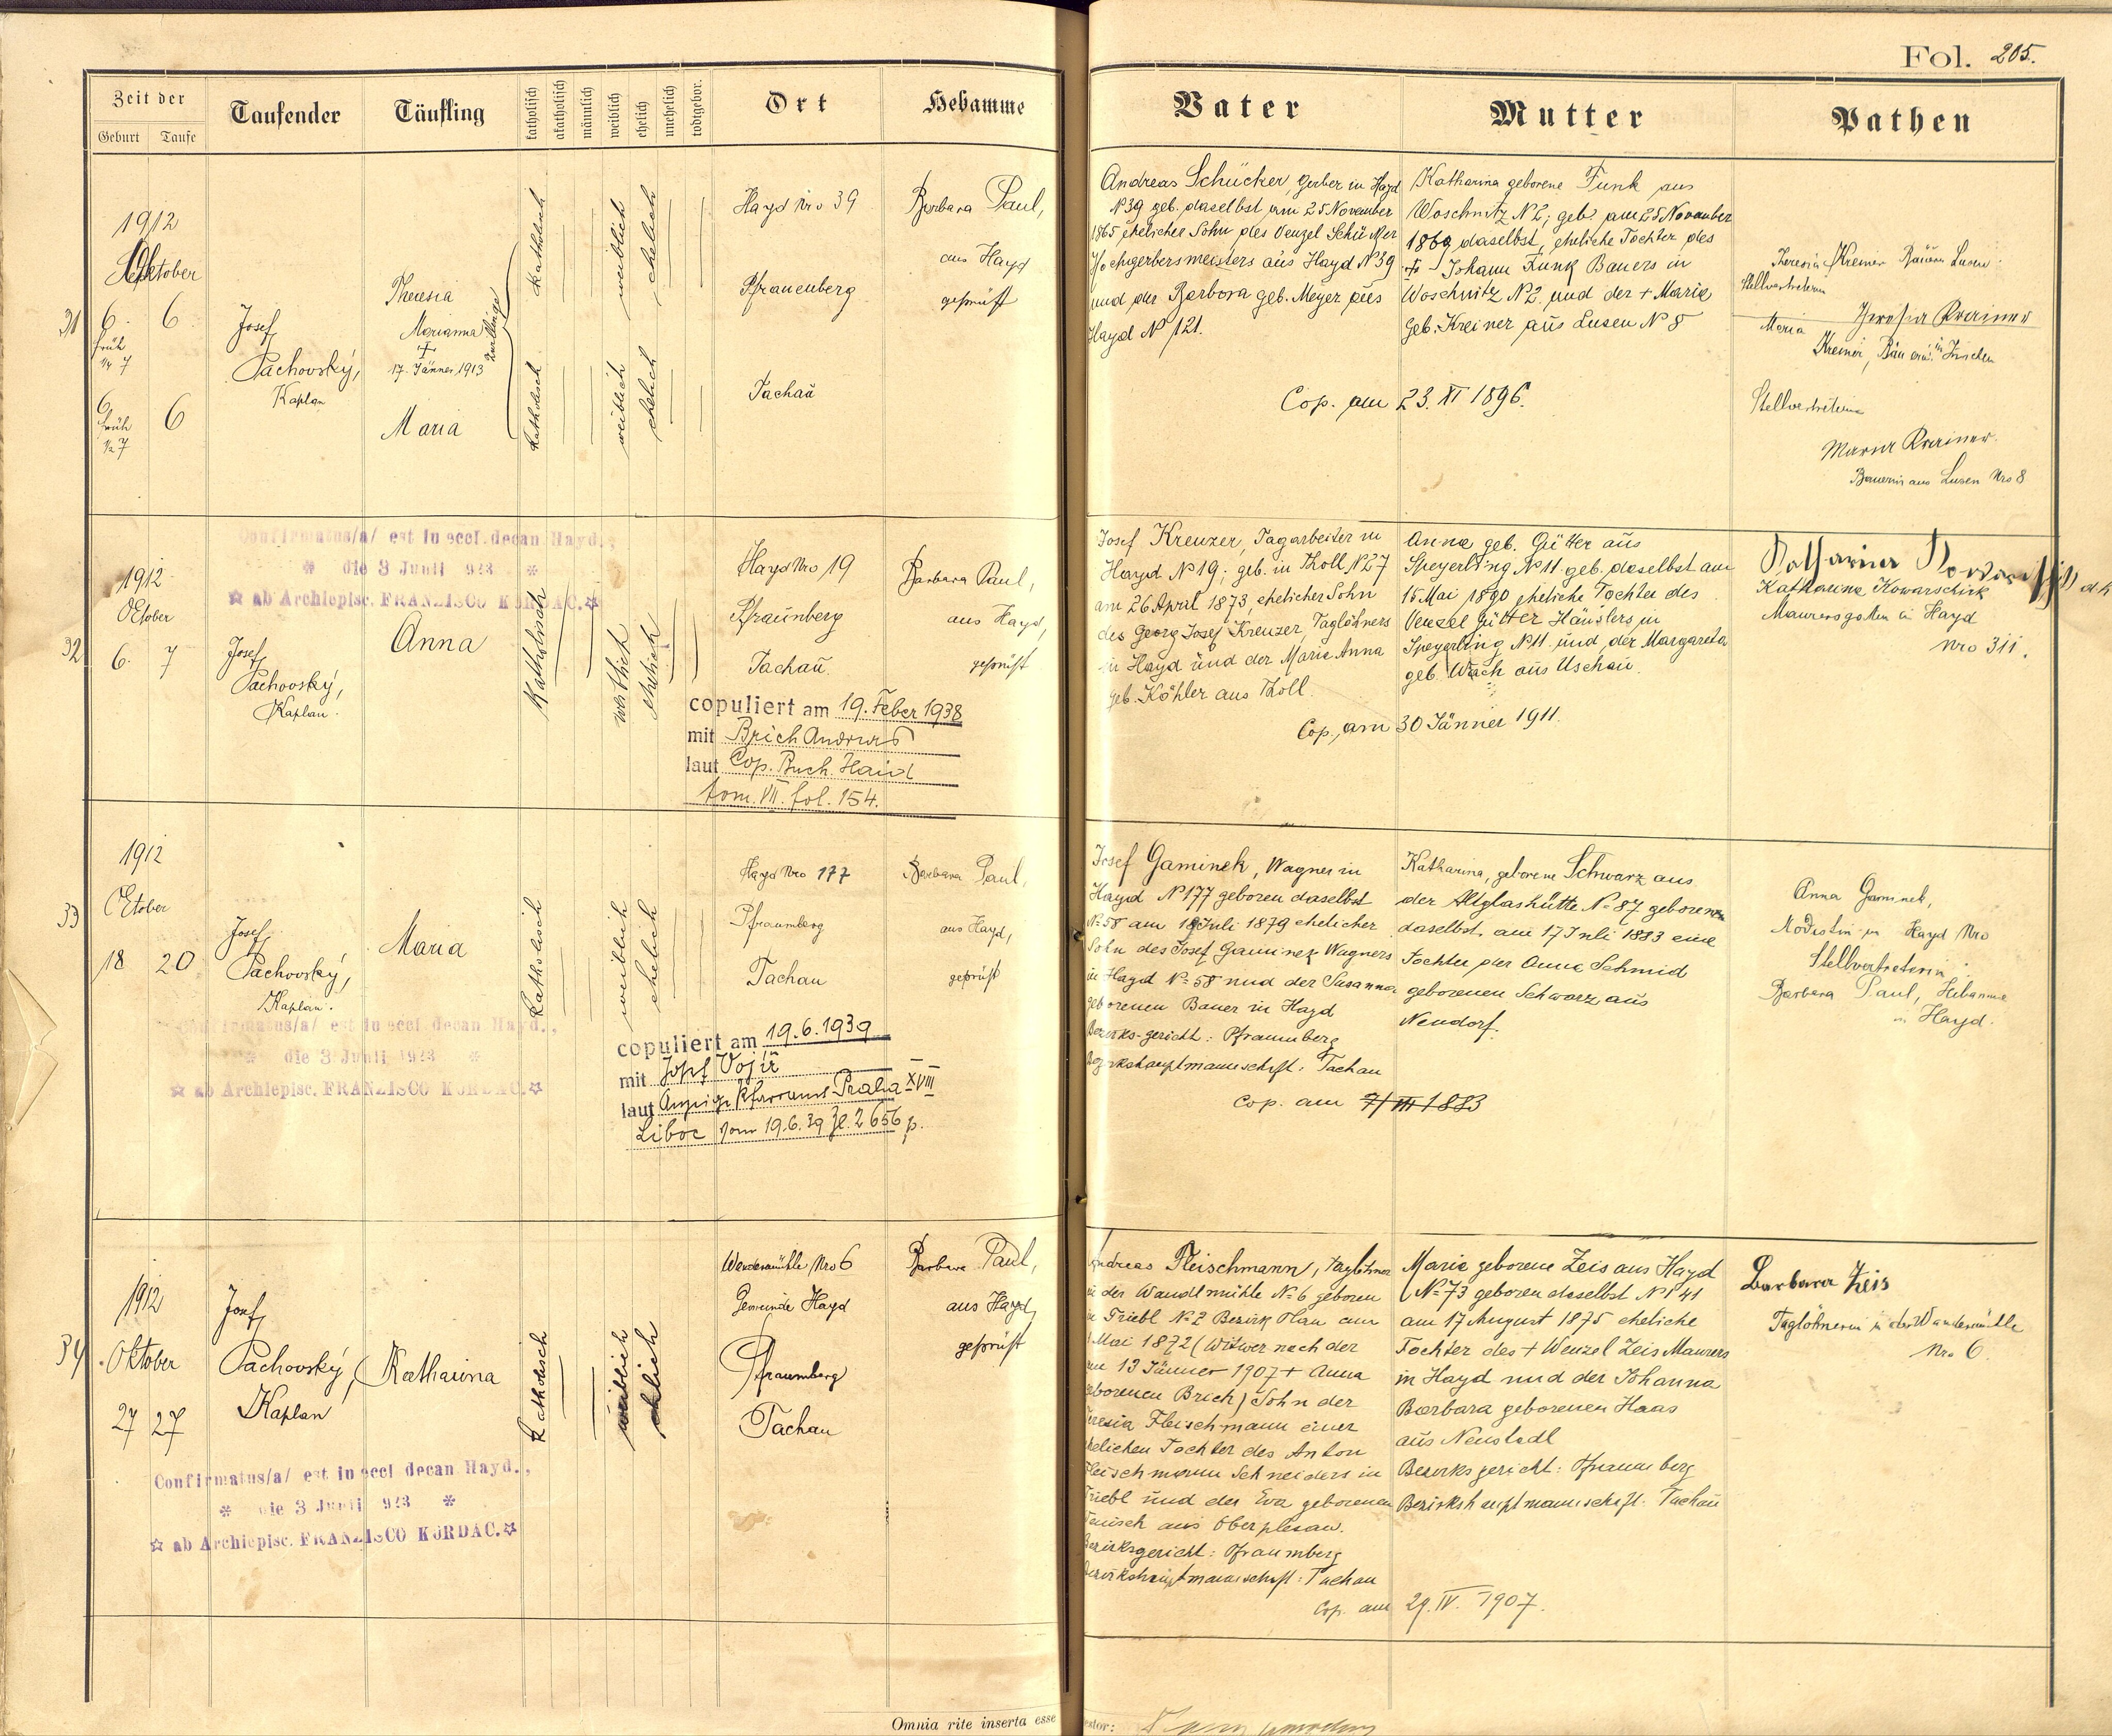 Fol. 205.
Zeit der
Geburt Taufe
Taufender
Täufling
katholisch
akatholisch
männlich
weiblich
ehelich
unehelich
todtgebor.
Ort
Hebamme
Vater
Mutter
Pathen
31
1912
Oktober
6. 6
früh
1/4 7
6 6
früh
1/2 7
Josef
Pachovský,
Kaplan
Theresia
Marianna
†
17. Jänner 1913
Zwillinge
Maria
katholisch
weiblich
ehelich
katholisch
weiblich
ehelich
Hayd Nro 39
Pfrauenberg
Tachau
Barbara Paul,
aus Hayd
geprüft
Andreas Schücker, Gerber in Hayd
N 39 geb. daselbst am 25 November
1865 ehelicher Sohn des Venzel Schücker
Hochgerbersmeisters aus Hayd N 39
und der Barbora geb. Meyer aus
Hayd N 121.
Katharina geborene Funk aus
Woschnitz N 2; geb. am 25 November
1869 daselbst, eheliche Tochter des
† Johann Funk Bauers in
Woschnitz N 2 und der † Maria
geb. Kreiner aus Lusen N 8
Cop. am 23. XI 1896.
Theresia Kreiner Bäuerin Lusen
Stellvertreterin
Theresia Kreiner
Maria
Kreiner, Bäuerin in
Stellvertreterin
Maria Kreiner
Bauerin aus Lusen Nro 8
32
1912
Oktober
6. 7
Confirmatus/a/ est in eccl. decan Hayd.,
* die 3 Junii 923 *
☆ ab Archiepisc. FRANZISCO KORDAC.☆
Josef
Pachovský,
Kaplan.
Anna
Katholisch
weiblich
ehelich
Hayd Nro 19
Pfraunberg
Tachau.
Barbara Paul,
aus Hayd,
geprüft
copuliert am 19. Feber 1938
mit Brich Andreas
laut Cop. Buch. Haid
tom. VII. fol. 154.
Josef Kreuzer, Tagarbeiter in
Hayd N 19; geb. in Tholl N 27
am 26 April 1873, ehelicher Sohn
des Georg Josef Kreuzer, Taglöhners
in Hayd und der Maria Anna
geb. Köhler aus Tholl.
Anna geb. Gütter aus
Speyerling N 11 geb. daselbst am
15 Mai 1890 eheliche Tochter des
Venzel Gütter Häuslers in
Speyerling N 11 und der Margareta
geb. Wach aus Uschau.
Cop. am 30 Jänner 1911.
Katharina Kowarschik
Katharina Kowarschik
Maurersgattin in Hayd
Nro 311.
33
1912
Oktober
18 20
Josef
Pachovský,
Kaplan.
Maria
Katholisch
weiblich
ehelich
Hayd Nro 177
Pfraumberg
Tachau
Barbara Paul,
aus Hayd,
geprüft
Confirmatus/a/ est in eccl decan Hayd.,
* die 3 Junii 1923 *
☆ ab Archiepisc. FRANZISCO KORDAC.☆
copuliert am 19.6.1939
mit Josef Vojíř
laut Anzeige Pfarramt Praha XVIII
Liboc vom 19.6.39 Zl. 2656 p.
Josef Gaminek, Wagner in
Hayd N 177 geboren daselbst
N 58 am 18 Juli 1879 ehelicher
Sohn des Josef Gaminek Wagners
in Hayd N 58 und der Susanna
geborenen Bauer in Hayd
Bezirks-gericht: Pfraumberg
Bezirkshauptmannschaft: Tachau
Katharina, geborene Schwarz aus
der Altglashütte N 87 geborenen
daselbst am 17 Juli 1883 eine
Tochter der Anna Schmid
geborenen Schwarz aus
Neudorf.
Cop. am 7/VII 1883
Anna Gaminek,
Modistin in Hayd Nro
Stellvertreterin
Barbara Paul, Hebamme
in Hayd.
34
1912
Oktober
27 27
Josef
Pachovský,
Kaplan
Katharina
Katholisch
weiblich
ehelich
Wandermühle Nro 6
Gemeinde Hayd
Pfraumberg
Tachau
Barbara Paul,
aus Hayd,
geprüft
Confirmatus/a/ est in eccl decan Hayd.,
* die 3 Junii 923 *
☆ ab Archiepisc. FRANZISCO KORDAC.☆
Andreas Fleischmann, Taglöhner
in der Wandlmühle N 6 geboren
in Triebl N 2 Bezirk Plan am
Mai 1872 (Witwer nach der
am 13 Jänner 1907 † Anna
geborenen Brich) Sohn der
Teresia Fleischmann einer
ehelichen Tochter des Anton
Fleischmann Schneiders in
Triebl und der Eva geborenen
aus Oberplesau.
Bezirksgericht: Pfraumberg
Bezirkshauptmannschaft: Tachau
Maria geborene Zeis aus Hayd
N 73 geboren daselbst N 141
am 17 August 1875 eheliche
Tochter des † Wenzel Zeis Maurers
in Hayd und der Johanna
Barbara geborenen Haas
aus Neustadl
Bezirksgericht: Pfraumberg
Bezirkshauptmannschaft: Tachau
Cop. am 29. IV. 1907.
Barbara Zeis
Taglöhnerin in der Wandermühle
Nro 6.
Omnia rite inserta esse